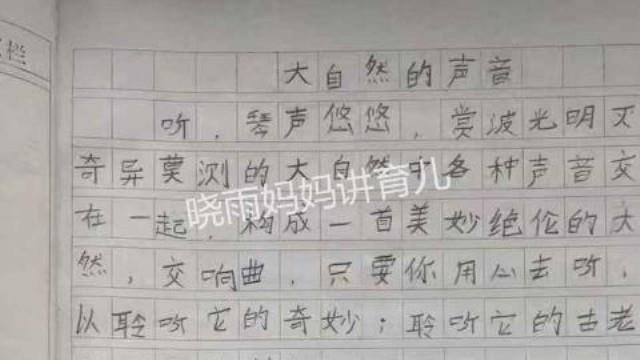 栏
大自然的声音
听，琴声悠悠，赏波光明灭
奇异莫测的大自然中各种声音交
在一起，构成一首美妙绝伦的大
然，交响曲，只要你用心去听，
以聆听它的奇妙；聆听它的古老
晓雨妈妈讲育儿